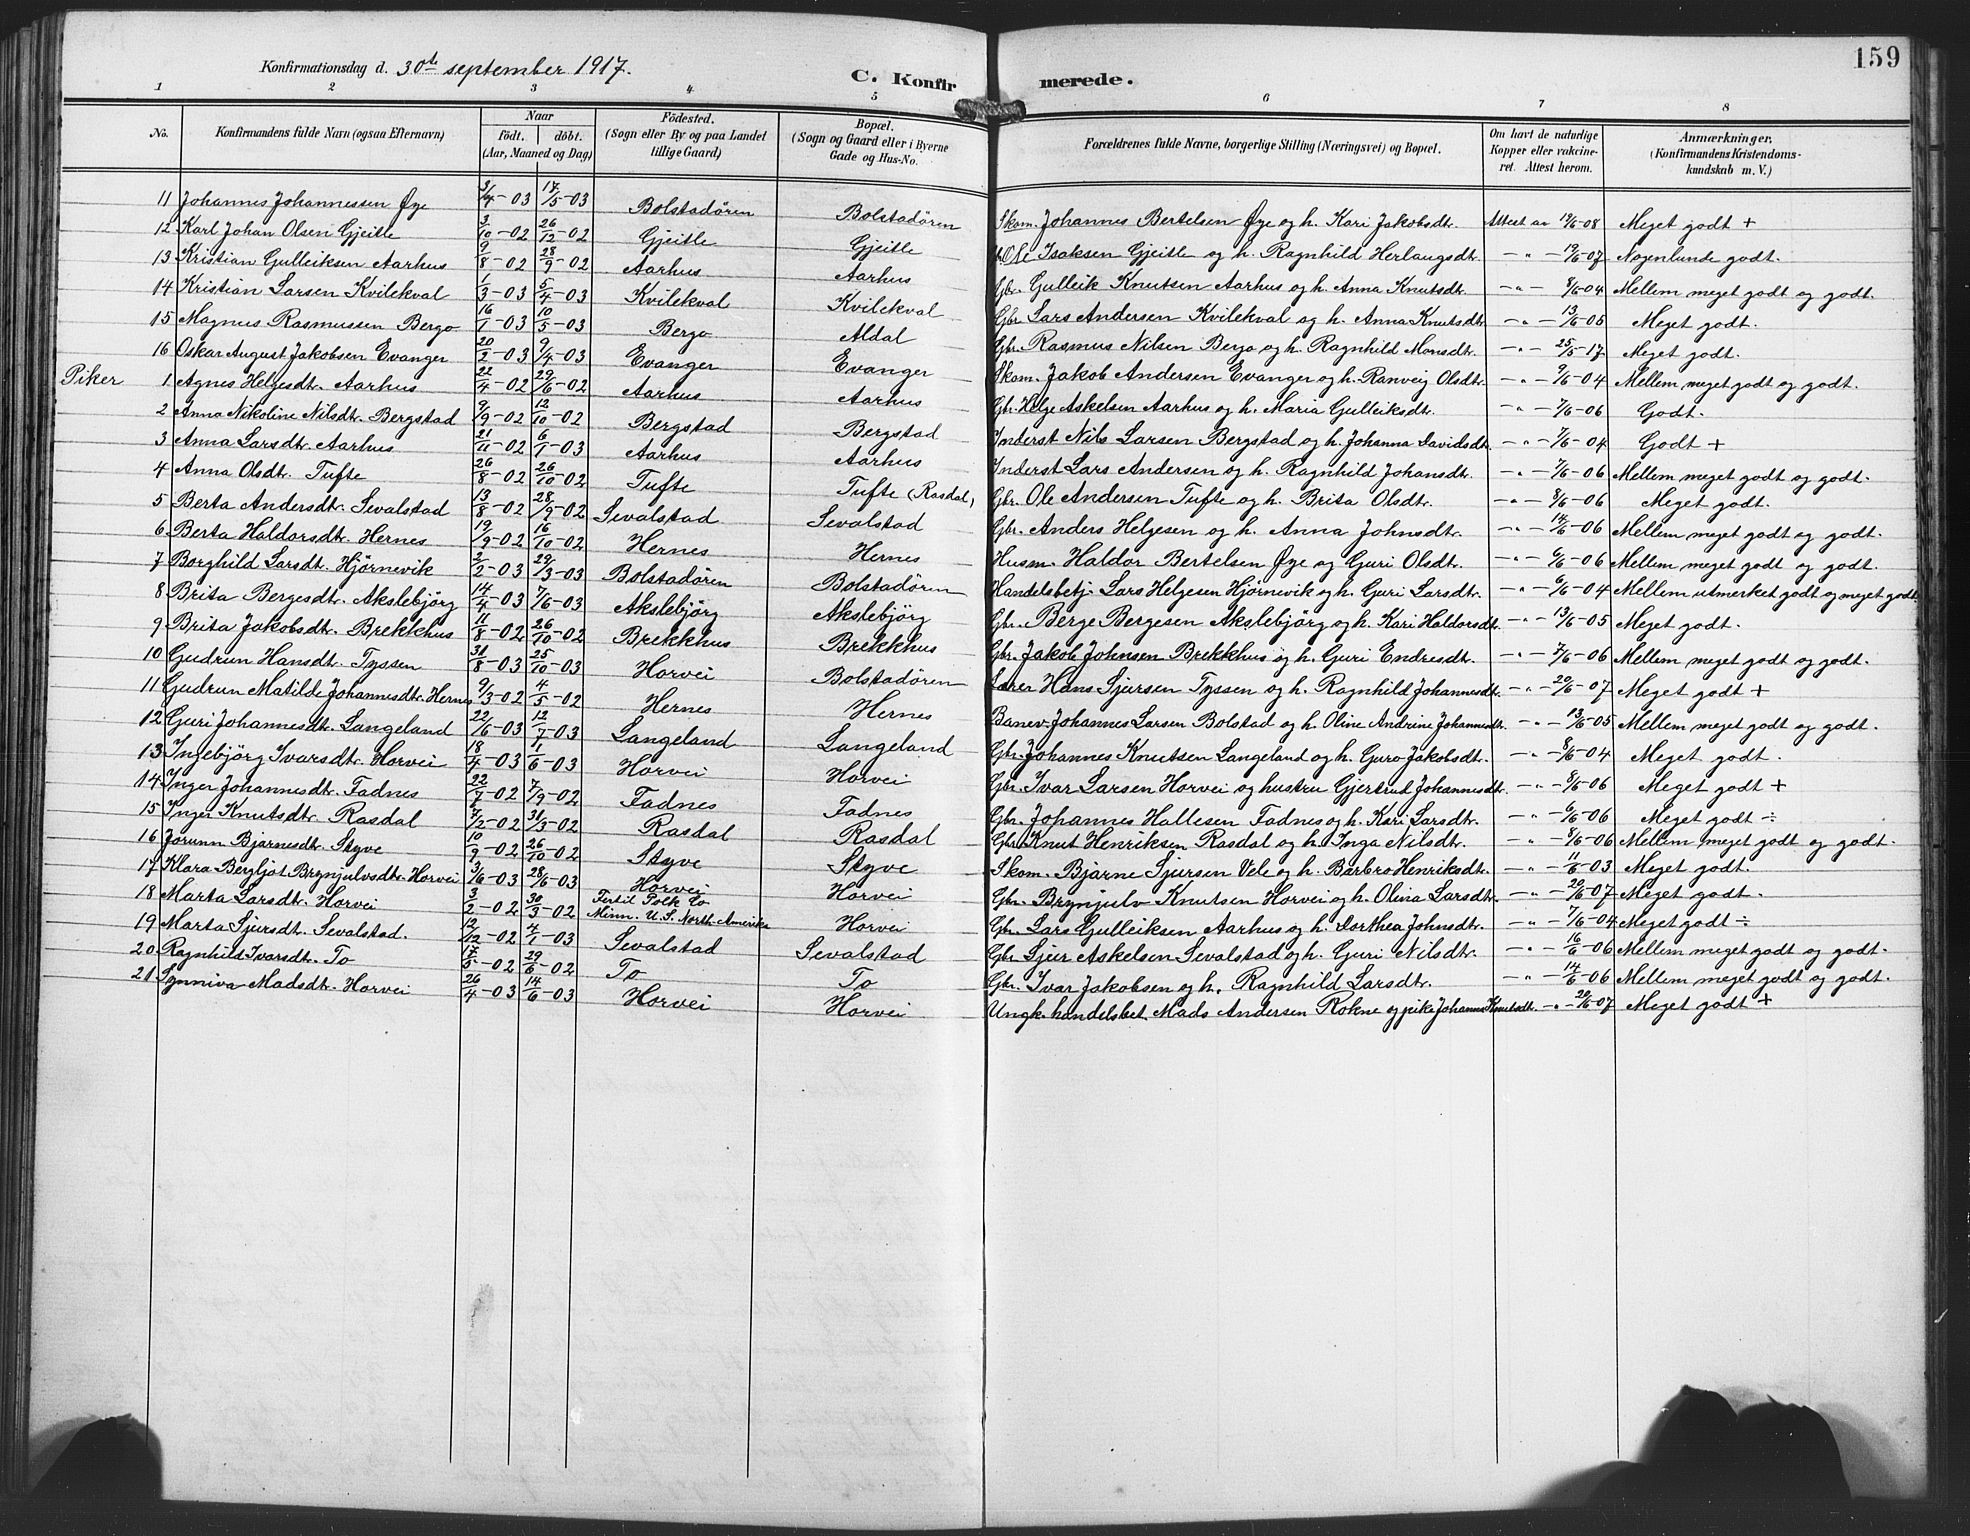 159
Konfirmationsdag d. 30te september 1917.
C. Konfirmerede.
1 2 3 4 5 6 7 8
No. Konfirmandens fulde Navn (ogsaa Efternavn) Naar födt. döbt. (Aar, Maaned og Dag) Födested. (Sogn eller By og paa Landet tillige Gaard) Bopæl. (Sogn og Gaard eller i Byerne Gade og Hus-No. Forældrenes fulde Navne, borgerlige Stilling (Næringsvei) og Bopæl. Om havt de naturlige Kopper eller vakcineret. Attest herom. Anmærkninger, (Konfirmandens Kristendomskundskab m. V.)
11 Johannes Johannessen Øye 3/4-03 17/5-03 Bolstadören Bolstadören Skom. Johannes Bertelsen Øye og h. Kari Jakobsdt. Attest av 12/6-08 Meget godt +
12 Karl Johan Olsen Gjeitle 3/10-02 26/12-02 Gjeitle Gjeitle Ole Isaksen Gjeitle og h. Ragnhild Herlaugsdt. -"- 19/6-07 Nogenlunde godt.
13 Kristian Gulleiksen Aarhus 9/8-02 28/9-02 Aarhus Aarhus Gbr. Gulleik Knutsen Aarhus og h. Anna Knutsdt. -"- 8/6-04 Mellem meget godt og godt.
14 Kristian Larsen Kvilekval 1/3-03 5/4-03 Kvilekval Kvilekval Gbr. Lars Andersen Kvilekval og h. Anna Knutsdt. -"- 13/6-05 Meget godt.
15 Magnus Rasmussen Bergo 16/1-03 10/5-03 Bergo Aldal Gbr. Rasmus Nilsen Bergo og h. Ragnhild Monsdt. -"- 25/5-17 Meget godt.
16 Oskar August Jakobsen Evanger 20/2-03 9/4-03 Evanger Evanger Skom. Jakob Andersen Evanger og h. Ranveig Olsdt. -"- 9/6-04 Mellem meget godt og godt.
Piker 1 Agnes Helgesdt. Aarhus 22/4-02 29/6-02 Aarhus Aarhus Gbr. Helge Askelsen Aarhus og h. Maria Gulleiksdt. -"- 7/6-06 Godt.
2 Anna Nikoline Nilsdt. Bergstad 9/9-02 12/10-02 Bergstad Bergstad Inderst Nils Larsen Bergstad og h. Johanna Davidsdt. -"- 7/6-04 Godt +
3 Anna Larsdt. Aarhus 21/11-02 6/1-03 Aarhus Aarhus Inderst Lars Andersen og h. Ragnhild Johansdt. -"- 7/6-06 Mellem meget godt og godt.
4 Anna Olsdt. Tufte 26/8-02 26/10-02 Tufte Tufte (Rasdal) Gbr. Ole Andersen Tufte og h. Brita Olsdt. -"- 8/6-06 Meget godt.
5 Berta Andersdt. Sevalstad 13/8-02 28/9-02 Sevalstad Sevalstad Gbr. Anders Helgesen og h. Anna Johnsdt. -"- 14/6-06 Mellem meget godt og godt.
6 Berta Haldorsdt. Hernes 19/9-02 16/10-02 Hernes Hernes Husm. Haldor Bertelsen Øye og Guri Olsdt. -"- 6/6-06 Mellem meget godt og godt.
7 Borghild Larsdt. Hjörnevik 2/2-03 29/3-03 Bolstadören Bolstadören Handelsbetj. Lars Helgesen Hjörnevik og h. Guri Larsdt. -"- 6/6-04 Mellem utmerket godt og meget godt
8 Brita Bergesdt. Akslebjörg 14/4-03 7/6-03 Akslebjörg Akslebjörg Gbr. Berge Bergesen Akslebjörg og h. Kari Haldorsdt. -"- 13/6-05 Meget godt.
9 Brita Jakobsdt. Brekkhus 11/8-02 26/10-02 Brekkhus Brekkhus Gbr. Jakob Johnsen Brekkhus og h. Guri Endresdt. -"- 7/6-06 Mellem meget godt og godt.
10 Gudrun Hansdt. Tyssen 31/8-03 25/10-03 Horvei Bolstadören Lærer Hans Sjursen Tyssen og h. Ragnhild Johannesdt. -"- 20/6-07 Meget godt +
11 Gudrun Matilde Johannesdt. Hernes 9/3-02 4/5-02 Hernes Hernes Banev. Johannes Larsen Bolstad og h. Oline Andrine Johannesdt. -"- 13/6-05 Mellem meget godt og godt.
12 Guri Johannesdt. Langeland 22/6-03 12/7-03 Langeland Langeland Gbr. Johannes Knutsen Langeland og h. Guro Jakobsdt. -"- 8/6-04 Meget godt.
13 Ingebjörg Ivarsdt. Horvei 18/4-03 1/6-03 Horvei Horvei Gbr. Ivar Larsen Horvei og hustru Gjertrud Johannesdt. -"- 8/6-06 Meget godt +
14 Inger Johannesdt. Fadnes 22/7-02 7/9-02 Fadnes Fadnes Gbr. Johannes Hallesen Fadnes og h. Kari Larsdt. -"- 6/6-06 Meget godt ÷
15 Inger Knutsdt. Rasdal 7/2-02 31/3-02 Rasdal Rasdal Gbr. Knut Henriksen Rasdal og h. Inga Nilsdt. -"- 8/6-06 Mellem meget godt og godt.
16 Jorunn Bjarnesdt. Styve 10/9-02 26/10-02 Styve Styve Skom. Bjarne Sjursen Vele og h. Barbro Henriksdt. -"- 11/6-03 Meget godt.
17 Klara Bergljot Brynjulvsdt. Horvei 3/6-03 28/6-03 Horvei Horvei Gbr. Brynjulv Knutsen Horvei og h. Olina Larsdt. -"- 20/6-07 Meget godt.
18 Marta Larsdt. Horvei 3/2-02 30/3-02 Fertil Polk Co Minn. U.S. North-Amerika Horvei Gbr. Lars Gulleiksen Aarhus og h. Dorthea Johnsdt. -"- 7/6-04 Meget godt ÷
19 Marta Sjursdt. Sevalstad. 12/12-02 4/1-03 Sevalstad Sevalstad Gbr. Sjur Askelsen Sevalstad og h. Guri Nilsdt. -"- 16/6-06 Mellem meget godt og godt.
20 Ragnhild Ivarsdt. To 17/5-02 29/6-02 To To Gbr. Ivar Jakobsen og h. Ragnhild Larsdt. -"- 14/6-06 Mellem meget godt og godt.
21 Synniva Madsdt. Horvei 26/4-03 14/6-03 Horvei Horvei Ungk. handelsbet. Mads Andersen Rokne og pike Johanna Knutsdt. -"- 20/6-07 Meget godt +